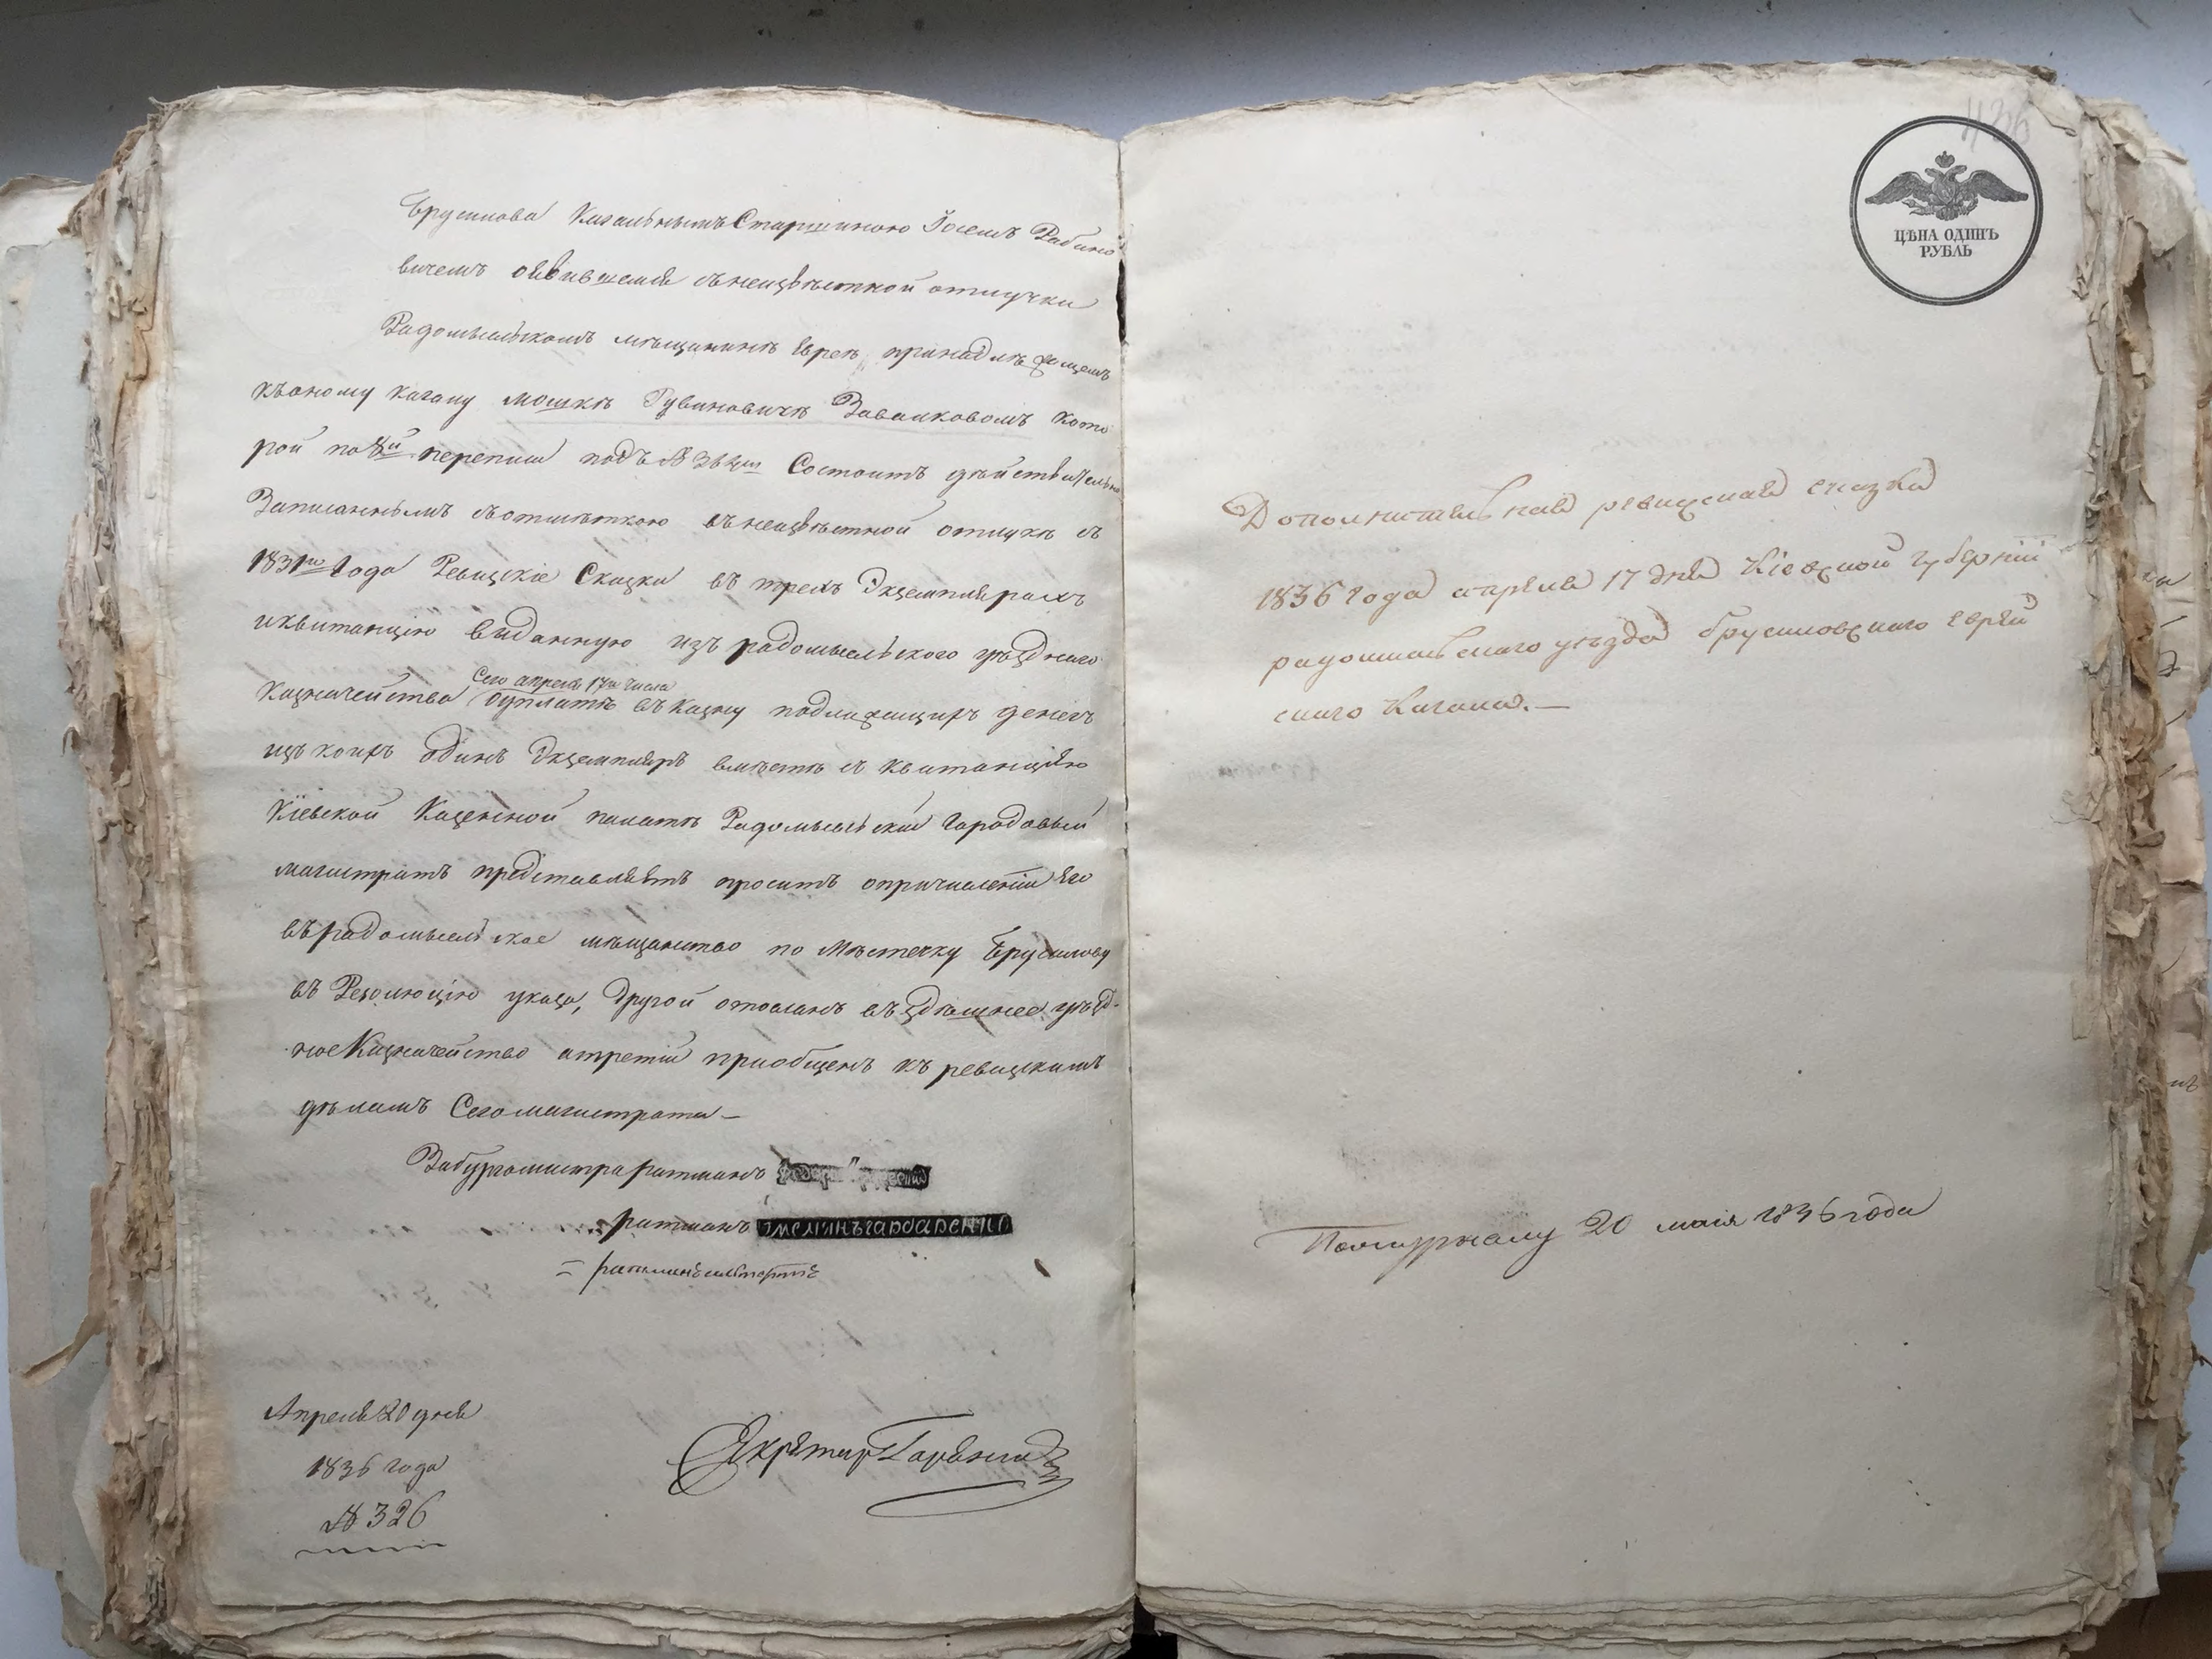 Брусилова Кагальнымъ Старшиною Іосемъ Рабино
вичемъ оявившемся съ неизвѣстной отлучки
Радомысльскомъ мѣщанинѣ Евреѣ, принадлѣжащемъ
къ оному кагалу Мошкѣ Рувиновичѣ Завалковомъ кото
рой по 8й переписи подъ № Состоитъ дѣйствительно
Записаннымъ съ отмѣткою въ неизвѣстной отлучкѣ съ
1831го Года Ревизскіе Сказки въ трехъ Экземплярахъ
и квитанцію выданную изъ радомысльского уѣзднаго
Сего апреля 17го числа
Казначейства въ казну подлежащихъ денегъ
изъ коихъ одинъ Экземпляръ вмѣстѣ съ квитанціею
Кіевской Казенной палатѣ Радомысльскій Городовый
магистратъ представляетъ проситъ о причисленіи Его
въ радомысльское мѣщанство по Мѣстечку Брусилову
въ Резолюцію указа, Другой отосланъ въ здѣшнее уѣзд-
ное Казначейство а третій приобщенъ къ ревизскимъ
дѣламъ Сего магистрата —
За бургомистра ратманъ
ратманъ
ратманъ
Апреля 20 дня
1836 года
№ 326
Секретарь
436
ЦѢНА ОДИНЪ
РУБЛЬ
Дополнительная ревизская сказка
1836 Года апреля 17 дня Кіевской губерніи
радомысльскаго уезда брусиловскаго еврей
скаго Кагала. —
По журналу 20 маія 1836 года